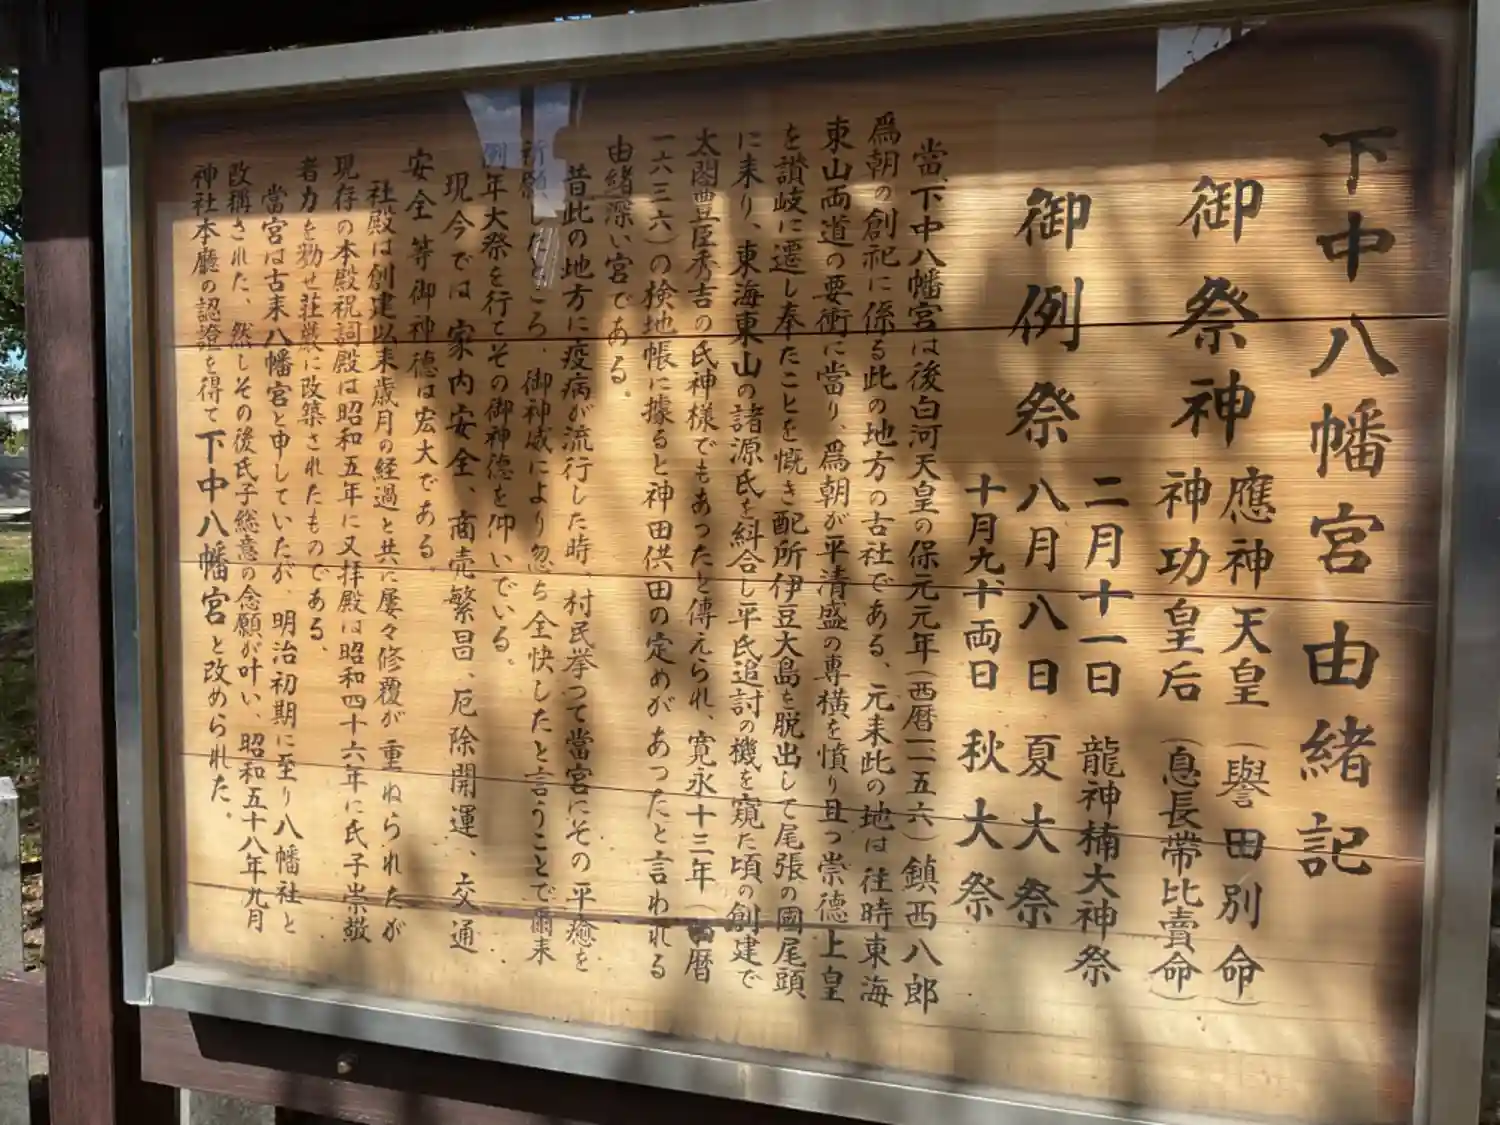 下中八幡宮由緒記
御祭神
應神天皇（譽田別命）
神功皇后（息長帶比賣命）
御例祭
二月十一日 龍神楠大神祭
八月八日 夏大祭
十月九十両日 秋大祭
當下中八幡宮は後白河天皇の保元元年（西暦一一五六）鎮西八郎
爲朝の創祀に係る此の地方の古社である、元来此の地は往時東海
東山両道の要衝に當り、爲朝が平清盛の専横を憤り且つ崇徳上皇
を讃岐に遷し奉たことを慨き配所伊豆大島を脱出して尾張の國尾頭
に来り、東海東山の諸源氏を糾合し平氏追討の機を窺た頃の創建で
太閤豊臣秀吉の氏神様でもあつたと傳えられ、寛永十三年（西暦
一六三六）の検地帳に據ると神田供田の定めがあったと言われる
由緒深い宮である。
昔此の地方に疫病が流行した時、村民挙つて當宮にその平癒を
祈願したところ、御神威により忽ち全快したと言うことで爾来
例年大祭を行てその御神徳を仰いでいる。
現今では家内安全、商売繁昌、厄除開運、交通
安全等御神徳は宏大である。
社殿は創建以来歳月の経過と共に屡々修覆が重ねられたが
現存の本殿祝詞殿は昭和五年に又拝殿は昭和四十六年に氏子崇敬
者力を勠せ荘厳に改築されたものである、
當宮は古来八幡宮と申していたが、明治初期に至り八幡社と
改稱された、然しその後氏子総意の念願が叶い、昭和五十八年九月
神社本廳の認證を得て下中八幡宮と改められた。